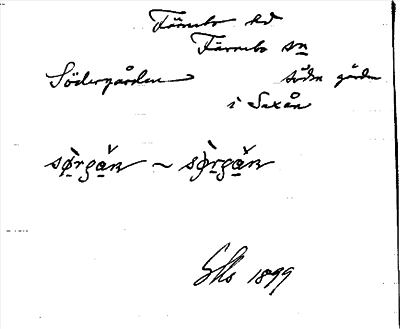 Färnebo hd
Färnebo sn
Södergården södra gården
i Saxån
sø̣̀rgạ̊̌n ~ sø̣̀rgạ̊̌n
SHs 1899